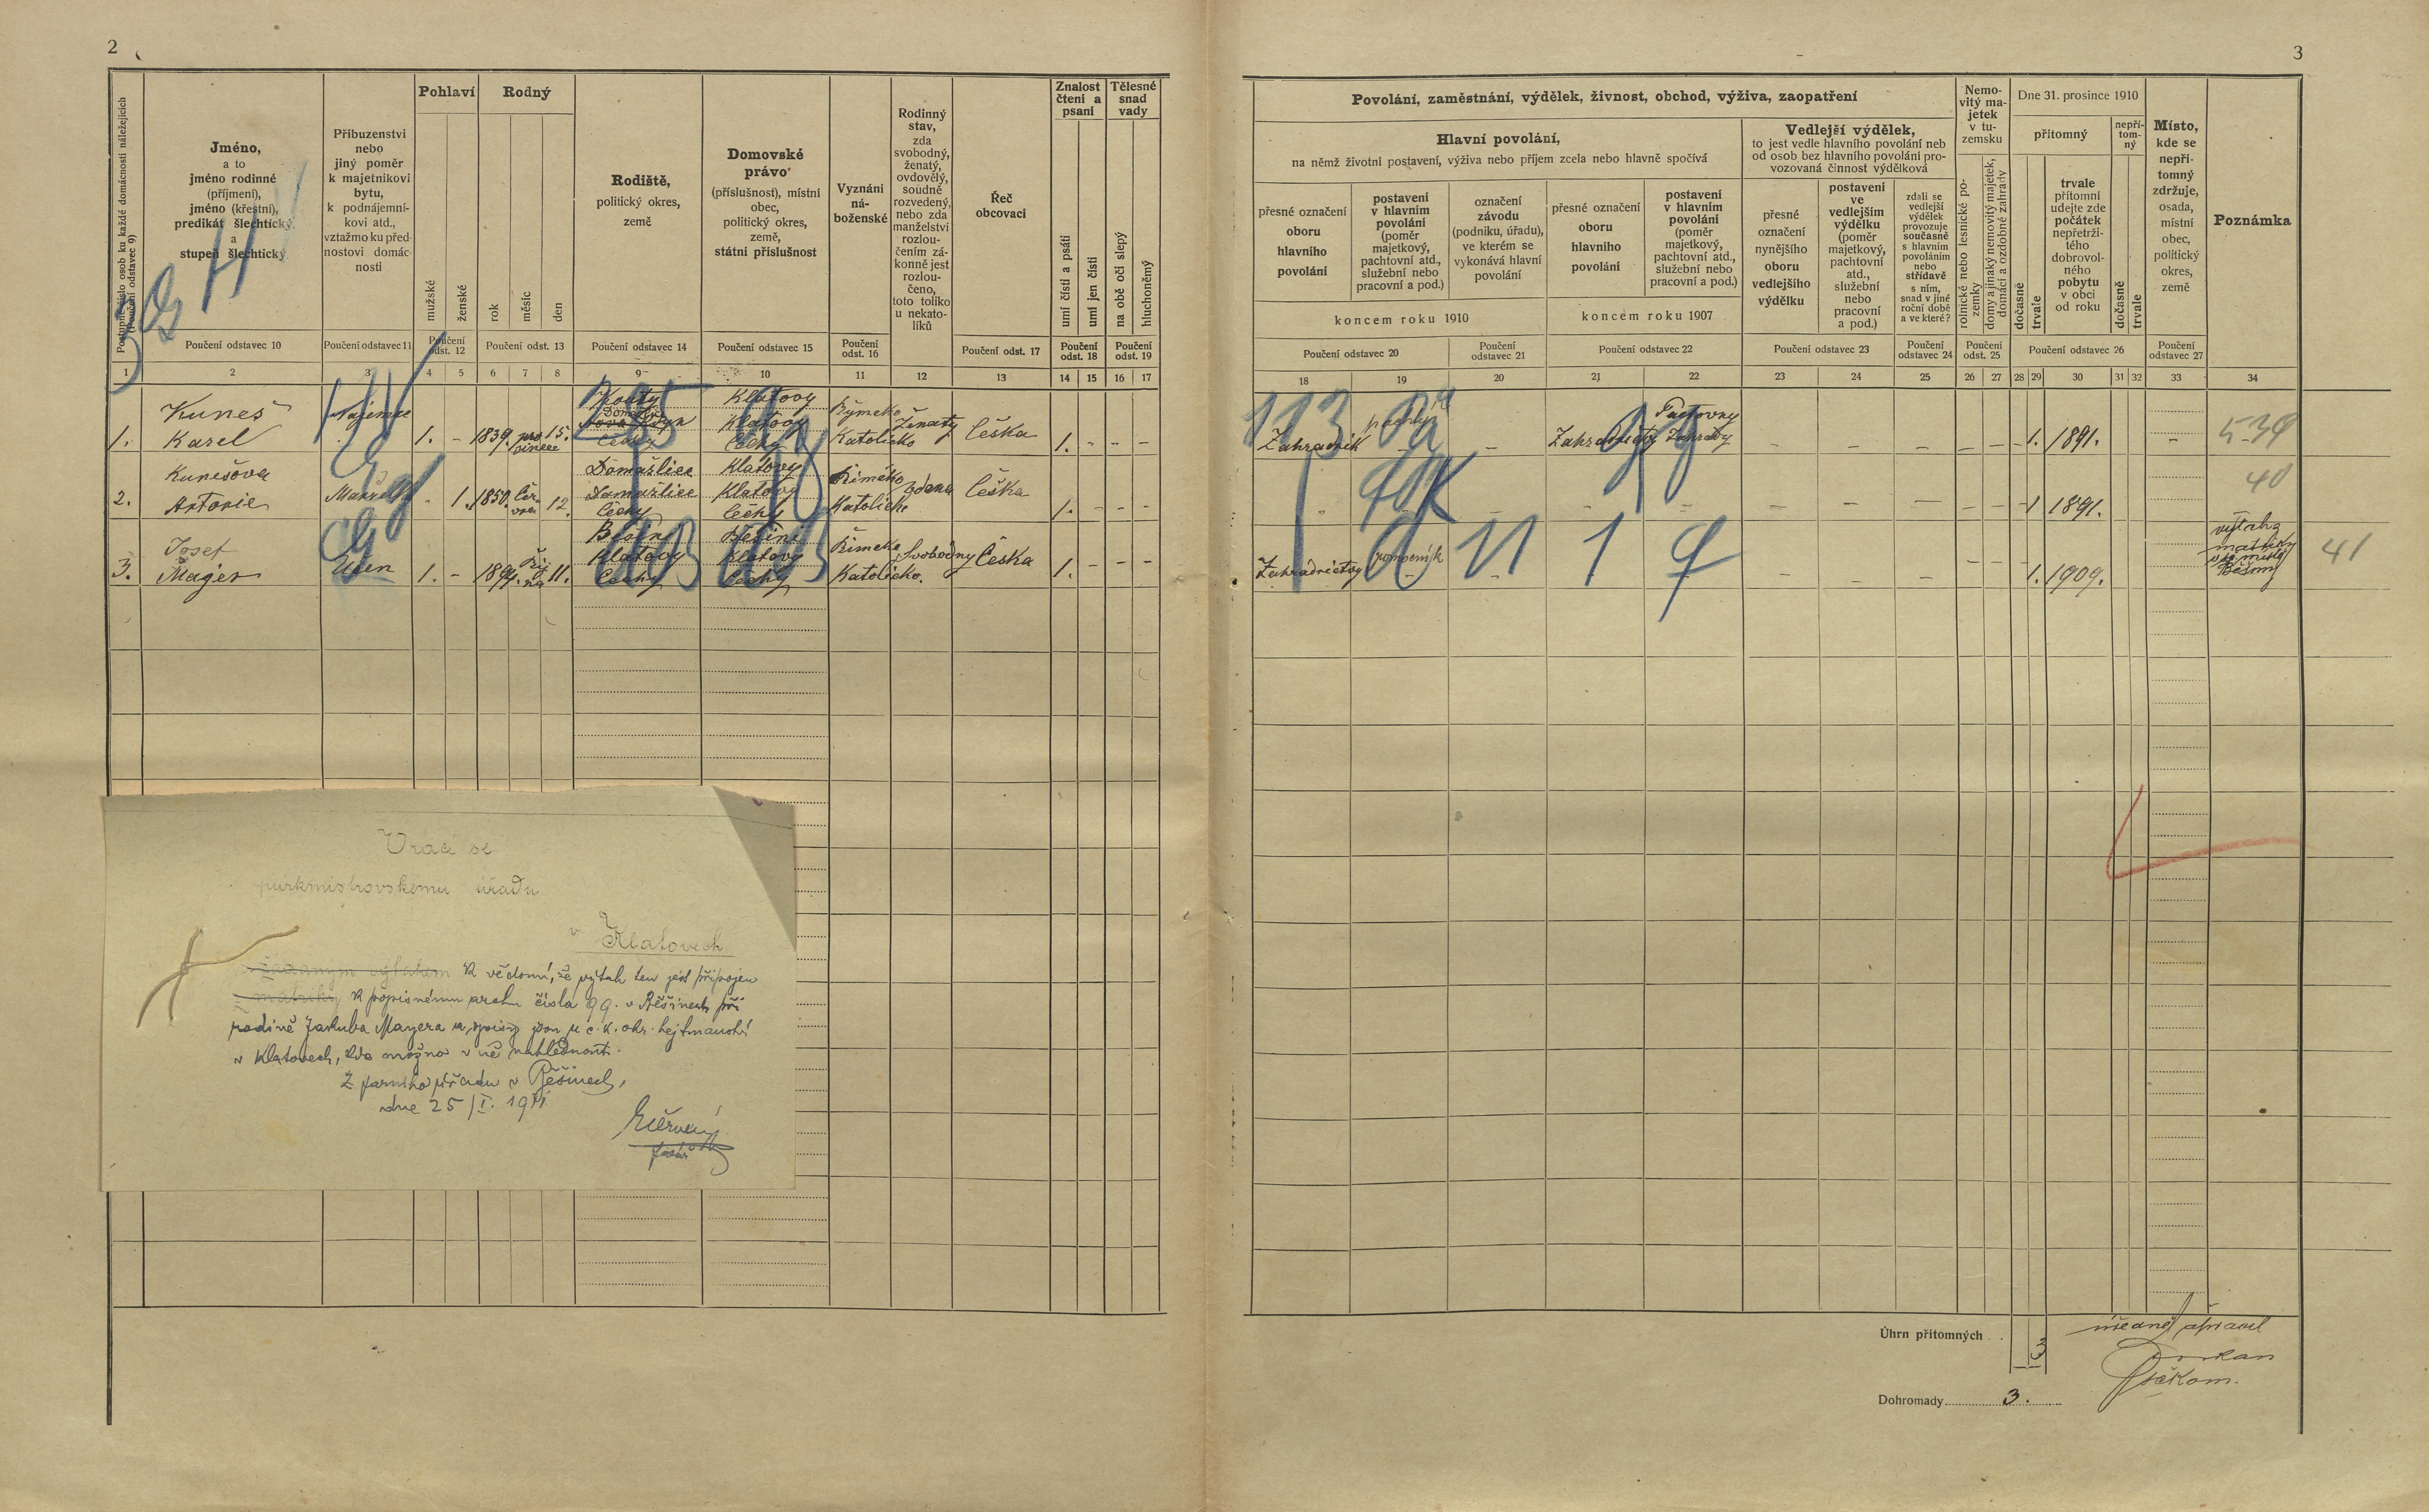 2
3
Postupné číslo osob ku každé domácnosti náležejících
(Poučení odstavec 9)
Jméno,
a to
jméno rodinné
(příjmení),
jméno (křestní),
predikát šlechtický
a
stupeň šlechtický
Příbuzenství
nebo
jiný poměr
k majetníkovi
bytu,
k podnájemní-
kovi atd.,
vztažmo ku před-
nostovi domác-
nosti
Pohlaví
mužské
ženské
Rodný
rok
měsíc
den
Rodiště,
politický okres,
země
Domovské
právo
(příslušnost), místní
obec,
politický okres,
země,
státní příslušnost
Vyznání
ná-
boženské
Rodinný
stav,
zda
svobodný,
ženatý,
ovdovělý,
soudně
rozvedený,
nebo zda
manželství
rozlou-
čením zá-
konně jest
rozlou-
čeno,
toto toliko
u nekato-
líků
Řeč
obcovací
Znalost
čtení a
psaní
umí čísti a psáti
umí jen čísti
Tělesné
snad
vady
na obě oči slepý
hluchoněmý
Poučení odstavec 10
Poučení odstavec 11
Poučení
odst. 12
Poučení odst. 13
Poučení odstavec 14
Poučení odstavec 15
Poučení
odst. 16
Poučení odst. 17
Poučení
odst. 18
Poučení
odst. 19
1 2 3 4 5 6 7 8 9 10 11 12 13 14 15 16 17
Povolání, zaměstnání, výdělek, živnost, obchod, výživa, zaopatření
Hlavní povolání,
na němž životní postavení, výživa nebo příjem zcela nebo hlavně spočívá
přesné označení
oboru
hlavního
povolání
postavení
v hlavním
povolání
(poměr
majetkový,
pachtovní atd.,
služební nebo
pracovní a pod.)
označení
závodu
(podniku, úřadu),
ve kterém se
vykonává hlavní
povolání
koncem roku 1910
přesné označení
oboru
hlavního
povolání
postavení
v hlavním
povolání
(poměr
majetkový,
pachtovní atd.,
služební nebo
pracovní a pod.)
koncem roku 1907
Vedlejší výdělek,
to jest vedle hlavního povolání neb
od osob bez hlavního povolání pro-
vozovaná činnost výdělková
přesné
označení
nynějšího
oboru
vedlejšího
výdělku
postavení
ve
vedlejším
výdělku
(poměr
majetkový,
pachtovní
atd.,
služební
nebo
pracovní
a pod.)
zdali se
vedlejší
výdělek
provozuje
současně
s hlavním
povoláním
nebo
střídavě
s ním,
snad v jiné
roční době
a ve které?
Nemo-
vitý ma-
jetek
v tu-
zemsku
rolnické nebo lesnické po-
zemky
domy a jinaký nemovitý majetek,
domácí a ozdobné zahrady
Dne 31. prosince 1910
přítomný
dočasně
trvale
trvale
přítomní
udejte zde
počátek
nepřetrži-
tého
dobrovol-
ného
pobytu
v obci
od roku
nepří-
tom-
ný
dočasně
trvale
Místo,
kde se
nepří-
tomný
zdržuje,
osada,
místní
obec,
politický
okres,
země
Poznámka
Poučení odstavec 20
Poučení
odstavec 21
Poučení odstavec 22
Poučení odstavec 23
Poučení
odstavec 24
Poučení
odst. 25
Poučení odstavec 26
Poučení
odstavec 27
18 19 20 21 22 23 24 25 26 27 28 29 30 31 32 33 34
1. Kuneš
Karel
Nájemce
1. - 1839. pro
since 15.
Kouty
Nova Kdyn
Čechy
Klatovy
Klatovy
Čechy
Římsko
Katolicko
Ženaty
Češka
1. - - -
113
Zahradnik
Zahradnicty
Pactovny
Zahrady
1. 1891.
539
2. Kunešova
Antonie
- 1. 1850. čer
vna 12.
Domažlice
Domažlice
Čechy
Klatovy
Klatovy
Čechy
Římsko
Katolicko
Vdana
Češka
1. - - -
1 1891.
40
3. Josef
Majer
1. - 11.
Klatovy
Čechy
Klatovy
Čechy
Římsko
Katolicko.
Svobodny
Česka
1. - - -
Zahradnictvy
pomocnik
1. 1909.
41
Vrací se
purkmistrovskemu úřadu
v Klatovech
K vědomí, že výtah ten jest připojen
matriky k popisnému archu čísla 99. v Běšinech při
rodině Jakuba Mayera a spisy jsou u c. k. okr. hejtmanství
v Klatovech, kde možno v ně nahlédnouti.
Z farního úřadu v Běšinech,
dne 25/I. 1911
farář
Úhrn přítomných . . 3
Dohromady 3.